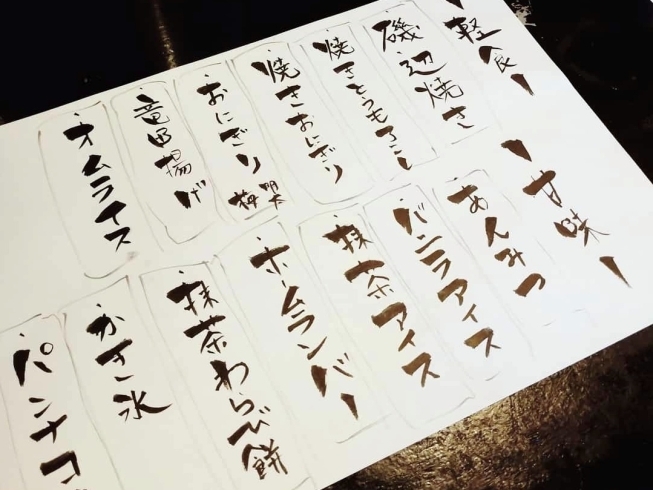 軽食
磯辺焼き
焼きとうもろこし
焼きおにぎり
おにぎり 明太 梅
竜田揚げ
オムライス
甘味
あんみつ
バニラアイス
抹茶アイス
ホームランバー
抹茶わらび餅
かき氷
パンナコ